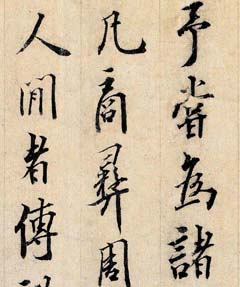 予嘗為諸
凡商彝周
人間者傳